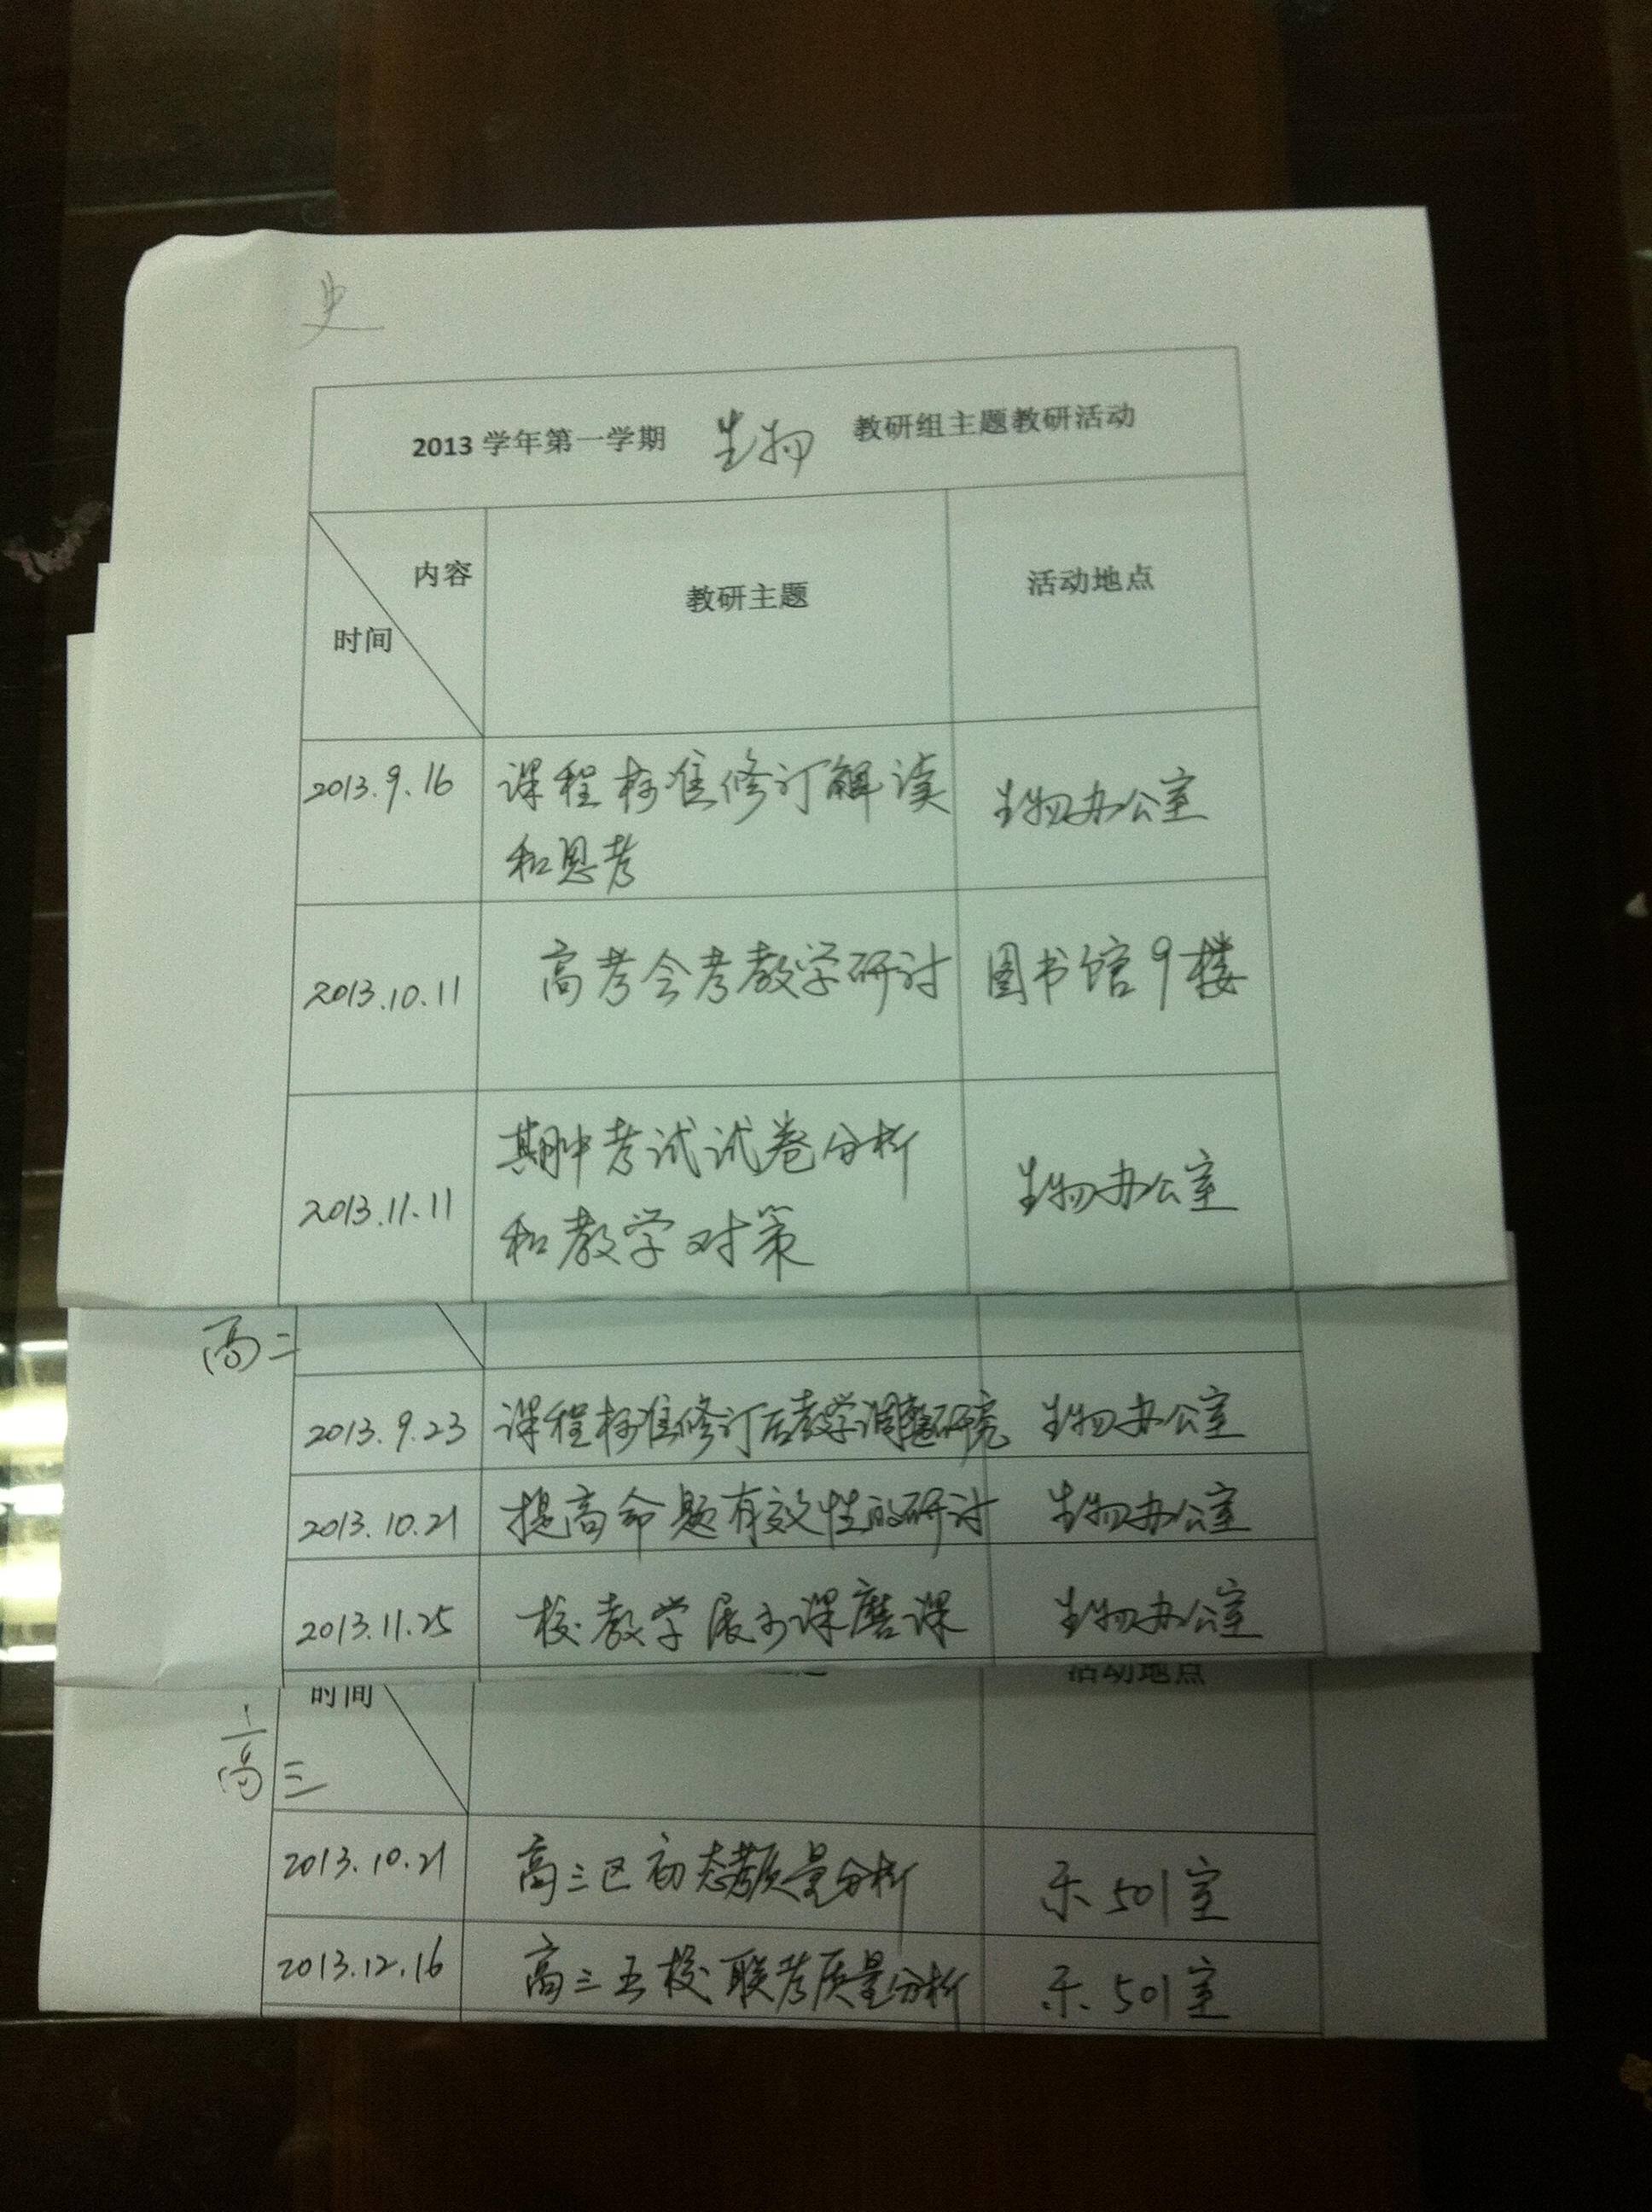 史
2013 学年第一学期 生物 教研组主题教研活动
内容
时间
教研主题
活动地点
2013.9.16 课程标准修订解读 生物办公室
和思考
2013.10.11 高考会考教学研讨 图书馆9楼
期中考试试卷分析
2013.11.11 生物办公室
和教学对策
高二
2013.9.23 课程标准修订后教学调整研究 生物办公室
2013.10.21 提高命题有效性的研讨 生物办公室
2013.11.25 校教学展示课磨课 生物办公室
时间 活动地点
高三
2013.10.21 高三区初态考质量分析 乐501室
2013.12.16 高三五校联考质量分析 乐501室